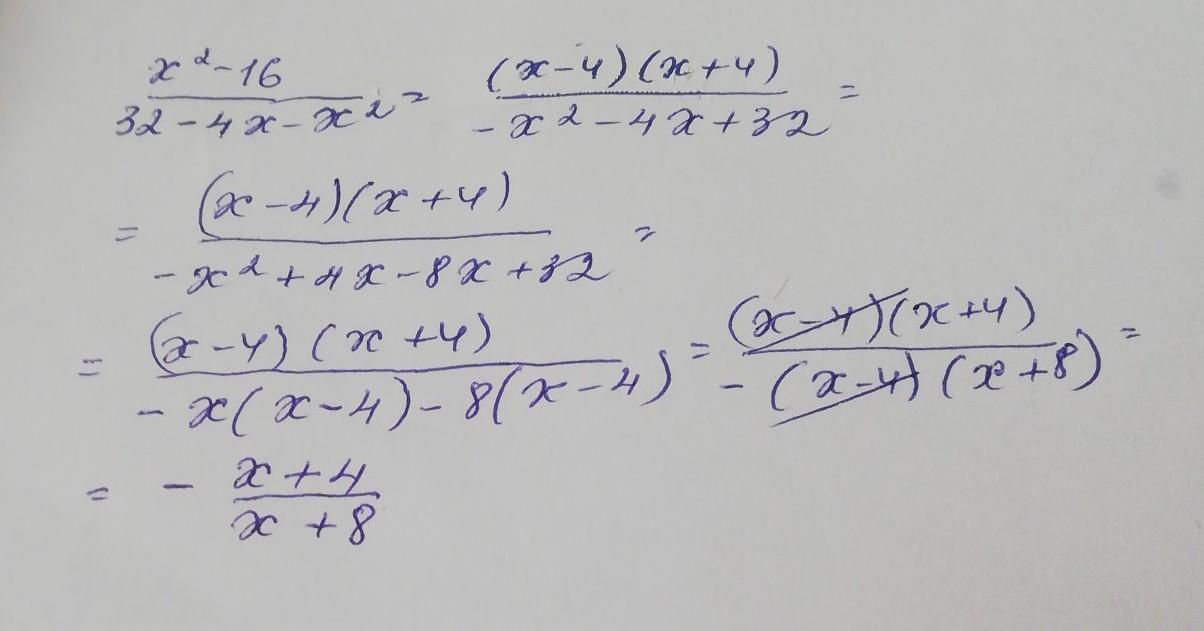 x² - 16 / 32 - 4x - x² = (x - 4)(x + 4) / -x² - 4x + 32 =
= (x - 4)(x + 4) / -x² + 4x - 8x + 32 =
= (x - 4)(x + 4) / -x(x - 4) - 8(x - 4) = (x - 4)(x + 4) / -(x - 4)(x + 8) =
= - x + 4 / x + 8